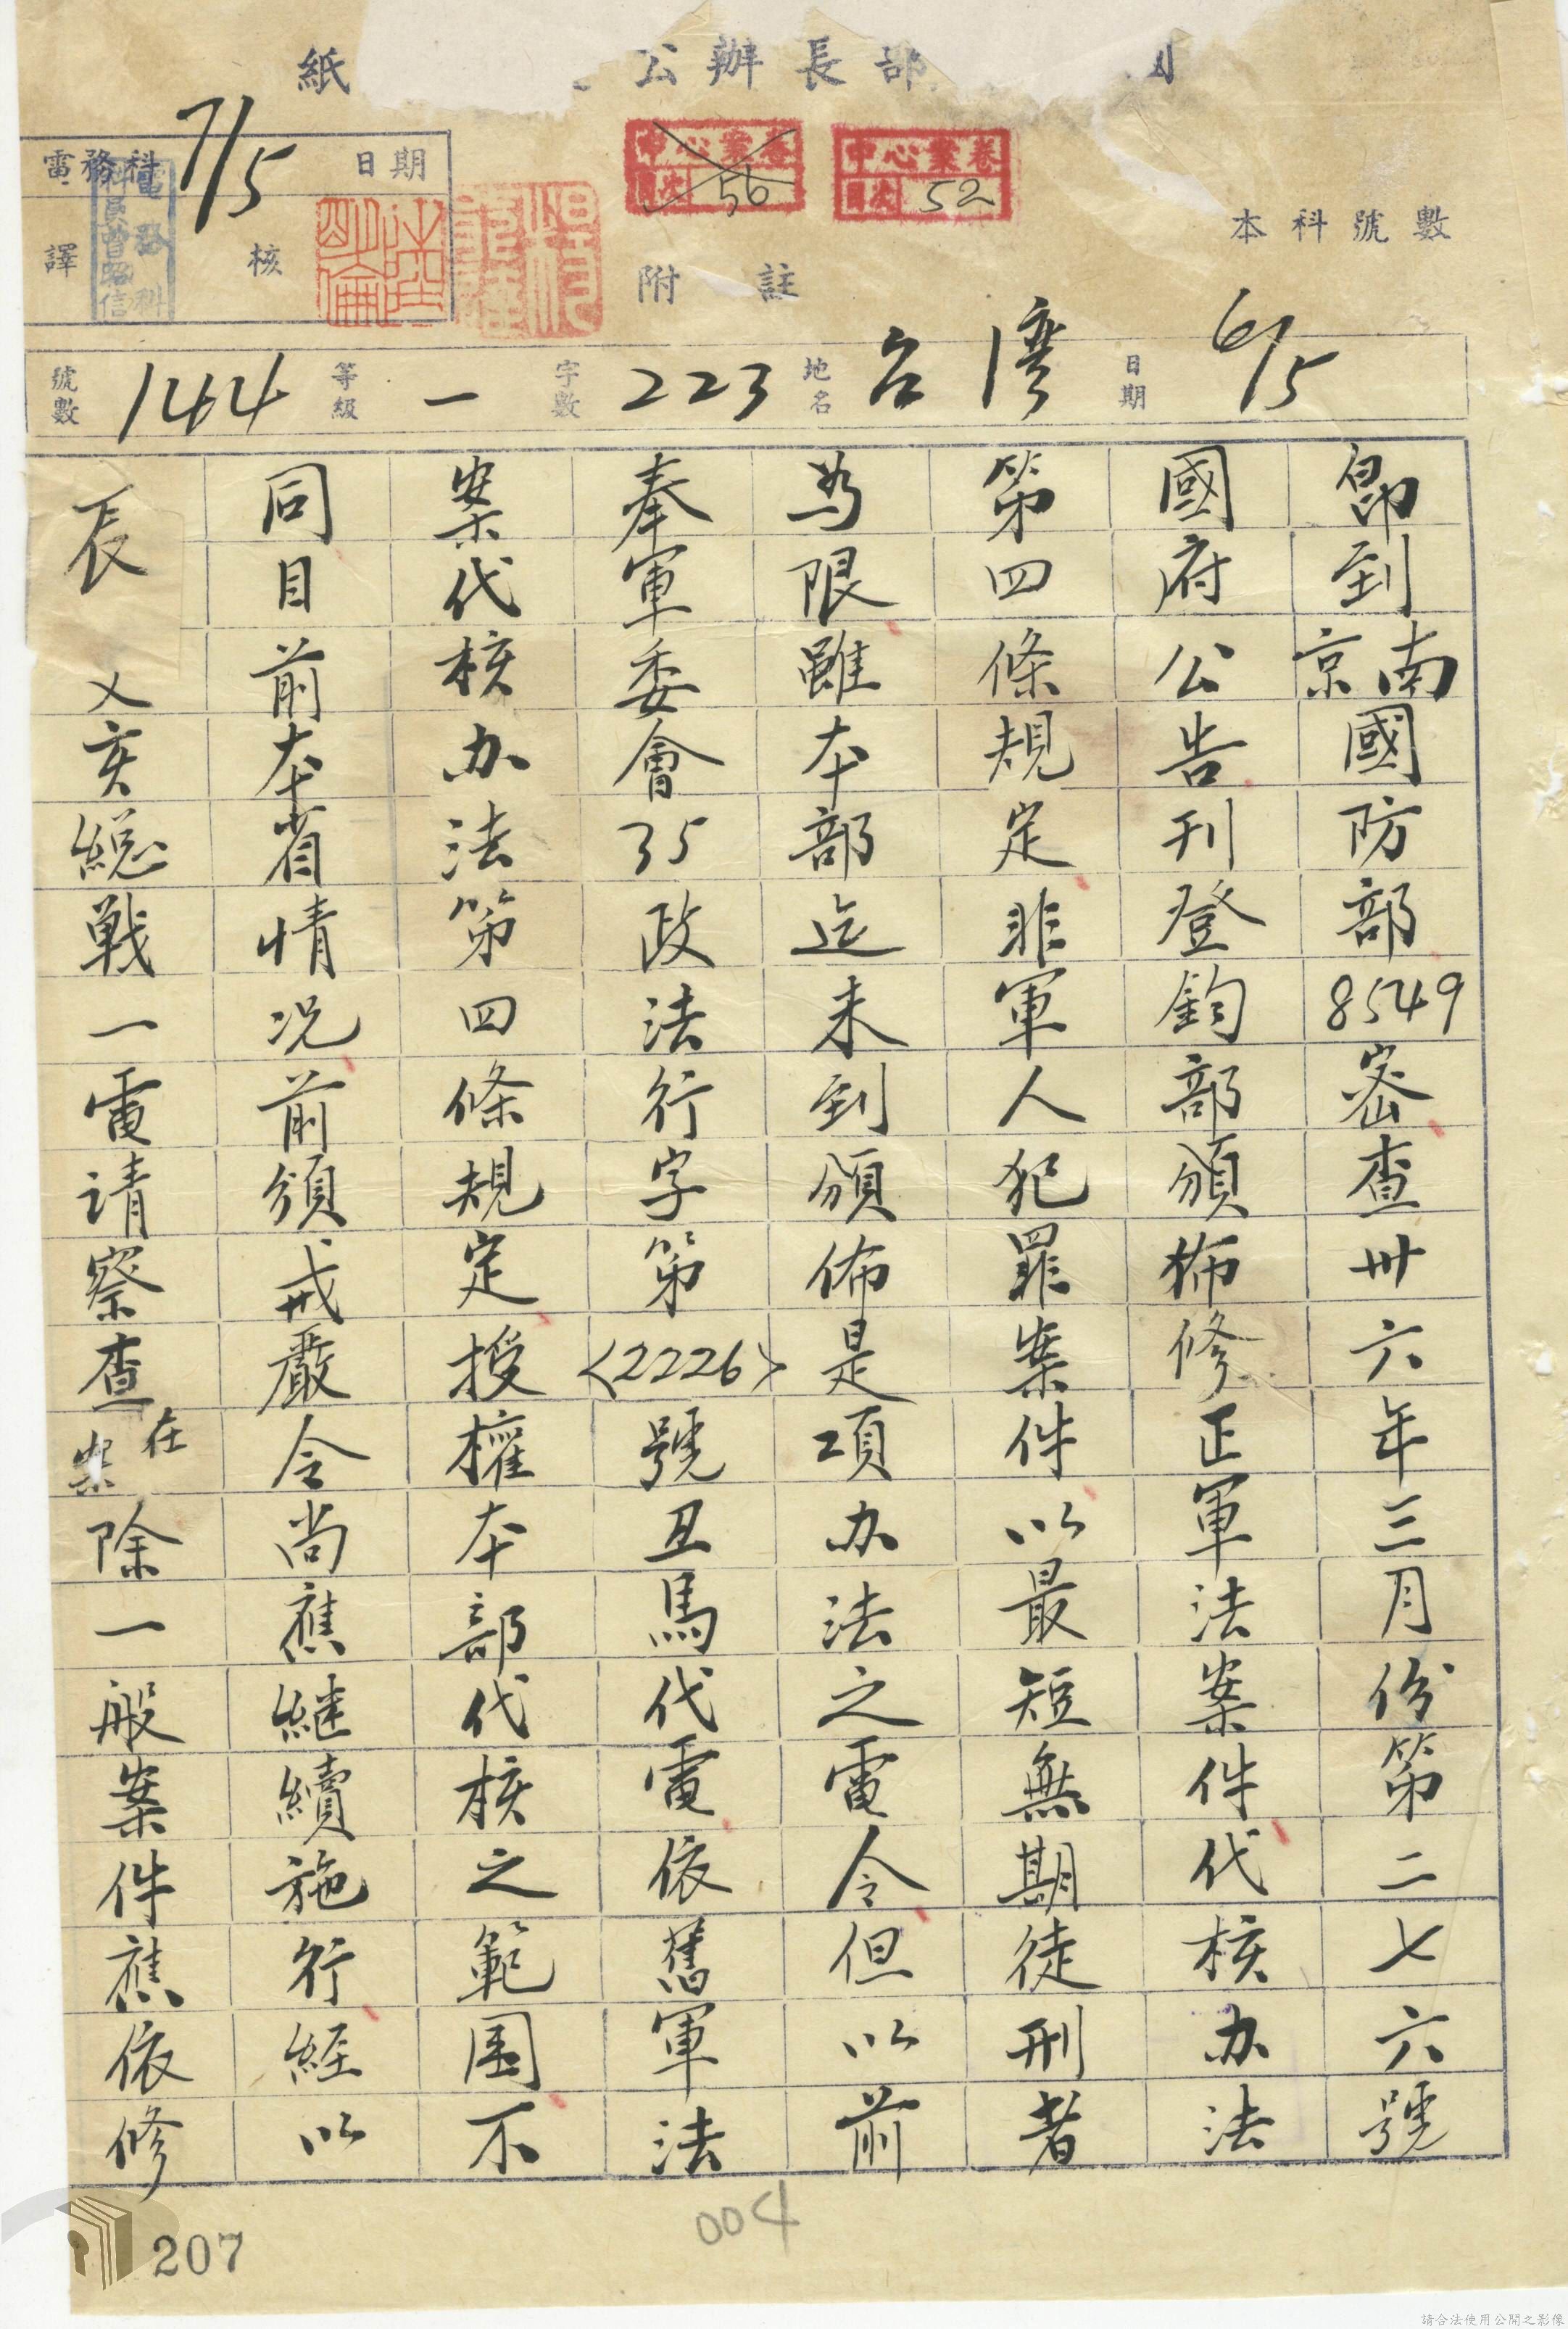 紙 公辦長部
電務科 7/5 日期
中心業卷 頁次 56
中心業卷 頁次 52
譯 核
電務科 科員曾昭信
附註
本科號數
號數 144 等級 一 字數 223 地名 台灣 日期 6/5
即到南京國防部8549密查卅六年三月份第二七六號
國府公告刊登鈞部頒佈修正軍法案件代核办法
第四條規定非軍人犯罪案件以最短無期徒刑者
為限雖本部迄未到頒佈是項办法之電令但以前
奉軍委會35政法行字第<2226>號丑馬代電依舊軍法
案代核办法第四條規定授權本部代核之範围不
同目前本省情况前頒戒嚴令尚應継續施行経以
辰 亥総戰一電請察查在案除一般案件應依修
004
207
請合法使用公開之影像